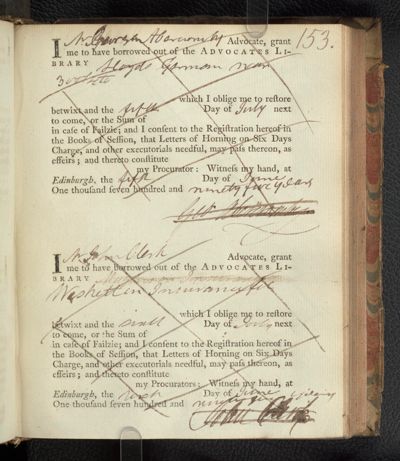 153.
I Mr George Abercromby Advocate, grant
me to have borrowed out of the ADVOCATES LI-
BRARY Lloyds German war
3
which I oblige me to restore
betwixt and the fifth Day of July next
to come, or the Sum of
in case of Failzie; and I consent to the Registration hereof in
the Books of Session, that Letters of Horning on Six Days
Charge, and other executorials needful, may pass thereon, as
effeirs; and thereto constitute
my Procurator: Witness my hand, at
Edinburgh, the fifth Day of June
One thousand seven hundred and ninety five years
I Mr John Clerk Advocate, grant
me to have borrowed out of the ADVOCATES LI-
BRARY
Weskett on Insurances
which I oblige me to restore
betwixt and the sixth Day of July next
to come, or the Sum of
in case of Failzie; and I consent to the Registration hereof in
the Books of Session, that Letters of Horning on Six Days
Charge, and other executorials needful, may pass thereon, as
effeirs; and thereto constitute
my Procurator: Witness my hand, at
Edinburgh, the sixth Day of June
One thousand seven hundred and ninety five years
John Clerk